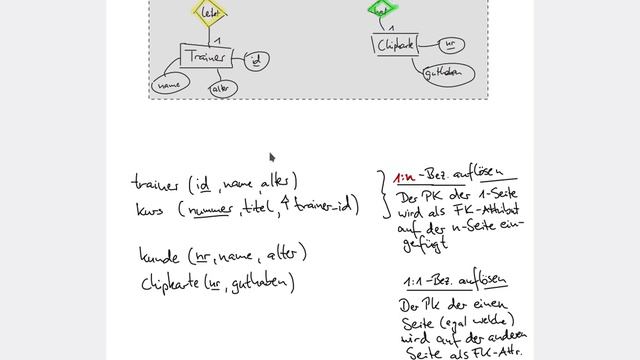 leitet
hat
1
1
Trainer
id
name
alter
Chipkarte
nr
guthaben
trainer (id, name, alter)
kurs (nummer, titel, ↑trainer-id)
kunde (nr, name, alter)
Chipkarte (nr, guthaben)
1:n-Bez. auflösen
Der PK der 1-Seite
wird als FK-Attribut
auf der n-Seite ein-
gefügt
1:1-Bez. auflösen
Der PK der einen
Seite (egal welche)
wird auf der anderen
Seite als FK-Attr.